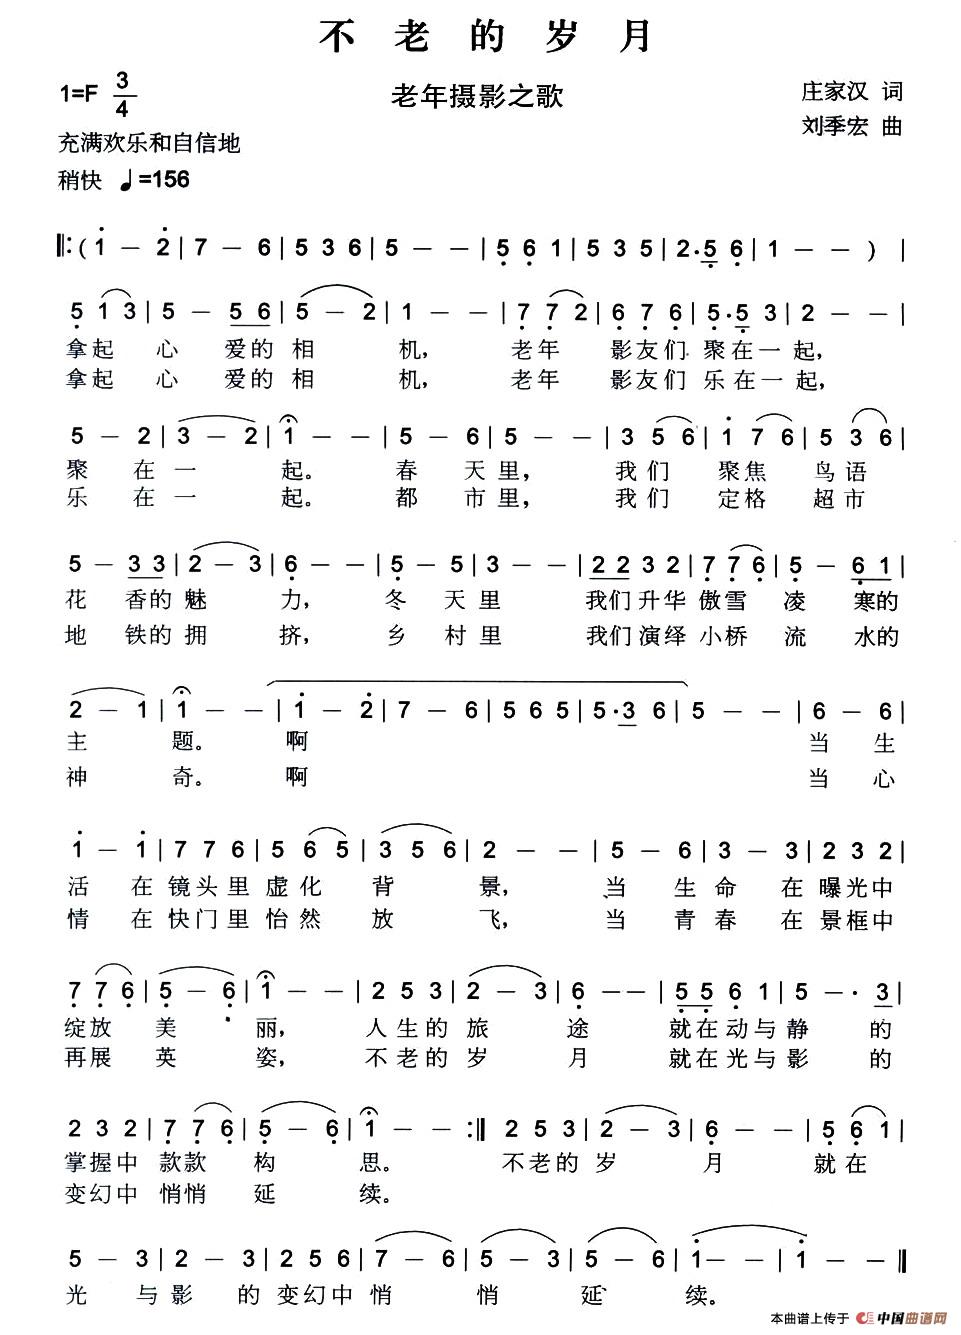 不老的岁月
1=F 3/4
老年摄影之歌
庄家汉 词
刘季宏 曲
充满欢乐和自信地
稍快 ♩=156
‖:( 1 — 2 | 7 — 6 | 5 3 6 | 5 — — | 5 6 1 | 5 3 5 | 2·5 6 | 1 — — ) |
5 1 3 | 5 — 5 6 | 5 — 2 | 1 — — | 7 7 2 | 6 7 6 | 5·5 3 | 2 — — |
拿起 心 爱的 相 机, 老年 影友们 聚在一起,
拿起 心 爱的 相 机, 老年 影友们 乐在一起,
5 — 2 | 3 — 2 | 1 — — | 5 — 6 | 5 — — | 3 5 6 | 1 7 6 | 5 3 6 |
聚 在 一 起。 春 天 里, 我 们 聚焦 鸟语
乐 在 一 起。 都 市 里, 我 们 定格 超市
5 — 3 3 | 2 — 3 | 6 — — | 5 — 5 | 3 — — | 2 2 3 2 | 7 7 6 | 5 — 6 1 |
花 香的 魅 力, 冬 天 里 我们升华 傲雪 凌 寒的
地 铁的 拥 挤, 乡 村 里 我们演绎 小桥 流 水的
2 — 1 | 1 — — | 1 — 2 | 7 — 6 | 5 6 5 | 5·3 6 | 5 — — | 6 — 6 |
主 题。 啊 当 生
神 奇。 啊 当 心
1 — 1 | 7 7 6 | 5 6 5 | 3 5 6 | 2 — — | 5 — 6 | 3 — 3 | 2 3 2 |
活 在 镜头里 虚化 背 景, 当 生 命 在 曝光中
情 在 快门里 怡然 放 飞, 当 青 春 在 景框中
7 7 6 | 5 — 6 | 1 — — | 2 5 3 | 2 — 3 | 6 — — | 5 5 6 1 | 5 — · 3 |
绽放 美 丽, 人生的 旅 途 就在动与静 的
再展 英 姿, 不老的 岁 月 就在光与影 的
2 3 2 | 7 7 6 | 5 — 6 | 1 — — :‖ 2 5 3 | 2 — 3 | 6 — — | 5 6 1 |
掌握中 款款 构 思。 不老的 岁 月 就在
变幻中 悄悄 延 续。
5 — 3 | 2 — 3 | 2 5 6 | 7 — 6 | 5 — 3 | 5 — 6 | 1 — — | 1 — ‖
光 与 影 的 变幻中 悄 悄 延 续。
本曲谱上传于 中国曲谱网